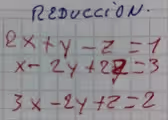 REDUCCION.
2x+y-z=1
x-2y+2z=3
3x-2y+z=2